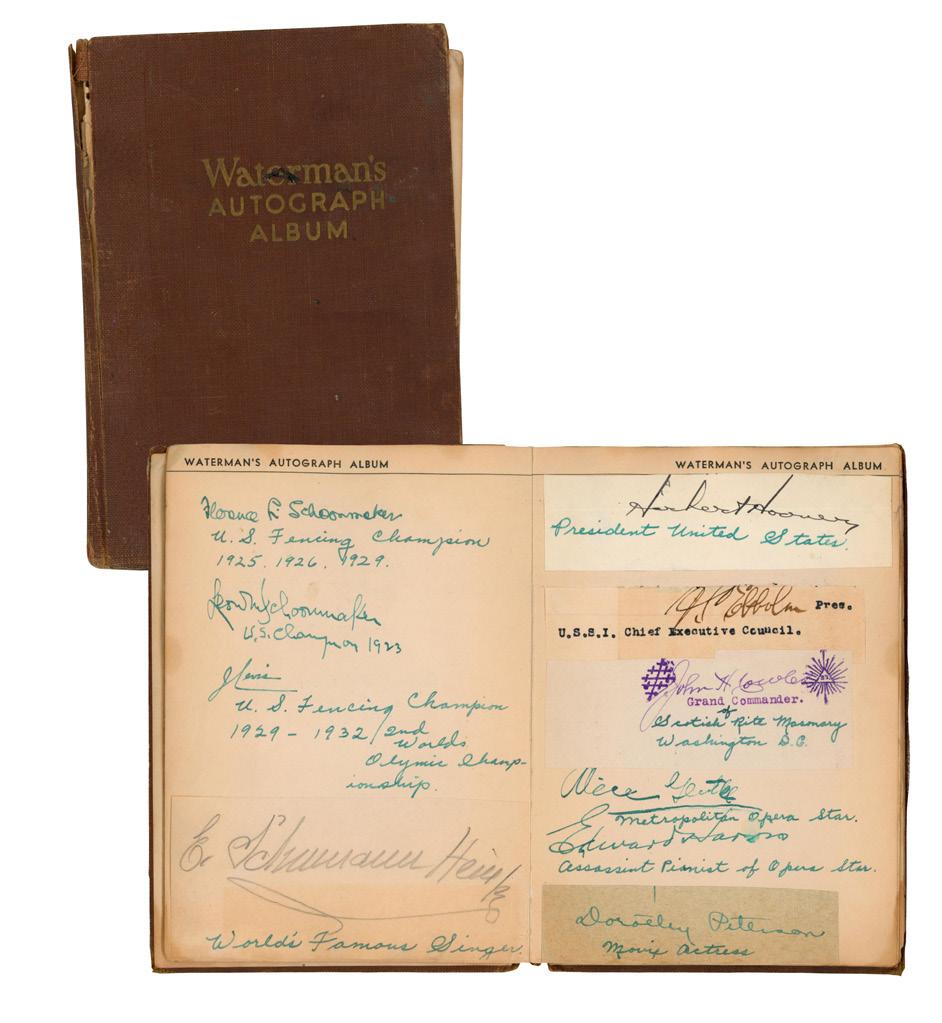 Waterman's
AUTOGRAPH
ALBUM
WATERMAN'S AUTOGRAPH ALBUM
Florence L. Schoonmaker
U. S. Fencing Champion
1925. 1926. 1929.
Schoonmaker
U.S. Champion 1923
J Levis
U. S. Fencing Champion
1929 - 1932 / 2nd
Worlds
Olymic Champ-
ionship.
E. Schumann Heink
World's Famous Singer
WATERMAN'S AUTOGRAPH ALBUM
Herbert Hoover
President United States.
Pres.
U.S.S.I. Chief Executive Council.
John H. Cowles
Grand Commander.
of
Scotish Rite Masonary
Washington D.C.
Metropolitan Opera Star.
Edward Harris
Assassint Pianist of Opera Star.
Dorothy Peterson
Movie Actress